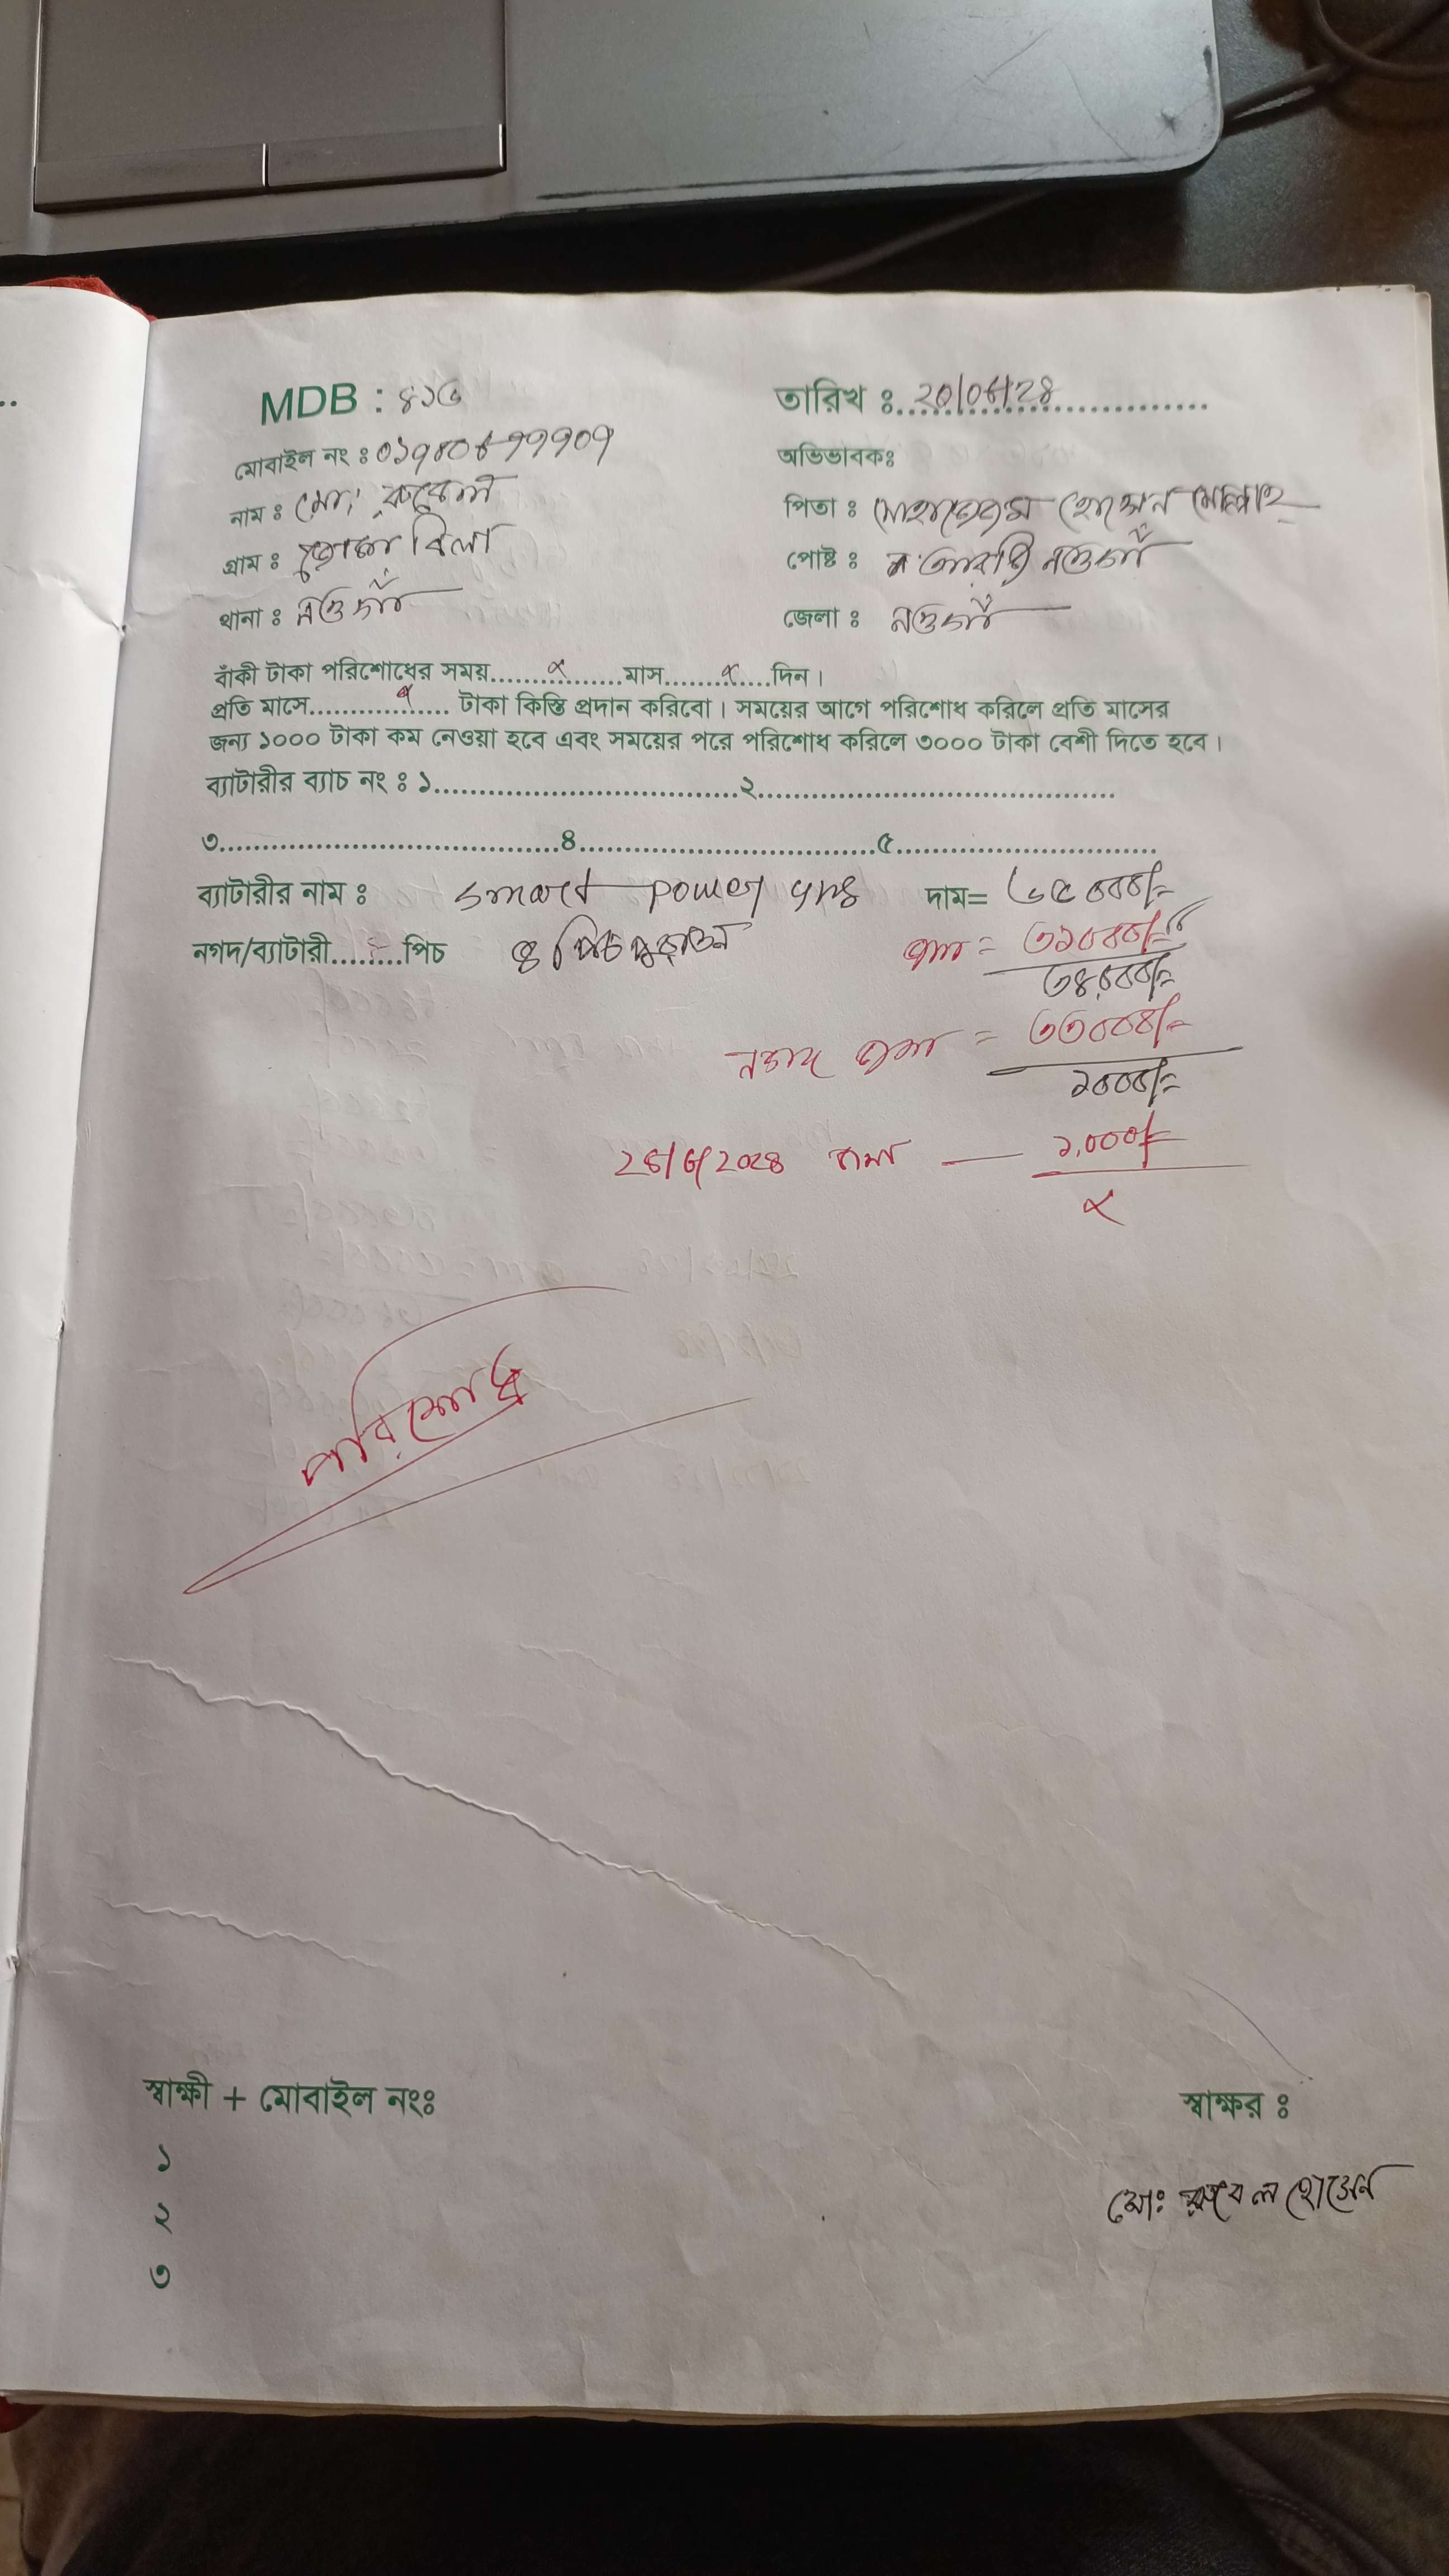 MDB : ৪১৩ তারিখ ঃ ২০/০৬/২৪
মোবাইল নং ঃ অভিভাবকঃ
নাম ঃ মো: রুবেল পিতা ঃ হোসেন মোল্লাহ
গ্রাম ঃ পোষ্ট ঃ আরজি নওগাঁ
থানা ঃ নওগাঁ জেলা ঃ নওগাঁ
বাঁকী টাকা পরিশোধের সময়.......×.......মাস.......×.....দিন।
প্রতি মাসে.............×..... টাকা কিস্তি প্রদান করিবো। সময়ের আগে পরিশোধ করিলে প্রতি মাসের
জন্য ১০০০ টাকা কম নেওয়া হবে এবং সময়ের পরে পরিশোধ করিলে ৩০০০ টাকা বেশী দিতে হবে।
ব্যাটারীর ব্যাচ নং ঃ ১.................................২.......................................
৩......................................৪.................................৫.............................
ব্যাটারীর নাম ঃ smart power দাম= ৬৫০০০/=
নগদ/ব্যাটারী........পিচ ৪ পিচ পুরাতন জমা = ৩১০০০/=
৩৪০০০/=
নগদ জমা = ৩৩০০০/=
১০০০/=
২৬/৬/২০২৪ জমা — ১,০০০/=
×
পরিশোধ
স্বাক্ষী + মোবাইল নংঃ স্বাক্ষর ঃ
১
মো: রুবেল হোসেন
২
৩